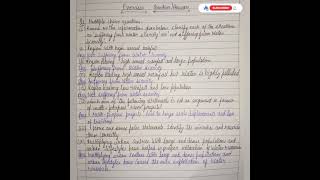 Exercise Question Answer
(1) Multiple choice questions.
(i) Based on the information given below classify each of the situations
as 'suffering from water scarcity' or 'not suffering from water
scarcity'.
a) Region with high annual rainfall.
water scarcity
(b) Region having high annual rainfall and large population.
Suffering from water scarcity
(c) Region having high annual rainfall but water is highly polluted.
Suffering from water scarcity
(d) Region having low rainfall and low population.
Not suffering from water scarcity
(ii) Which one of the following statements is not an argument in favour
of multi-purpose river projects?
Multi-purpose projects lead to large scale displacements and loss
of livelihood.
(iii) Here are some false statements. Identify the mistakes and rewrite
them correctly.
(a) Multiplying urban centres with large and dense populations and
urban lifestyles have helped in proper utilisation of water resources.
Multiplying urban centres with large and dense populations and
urban lifestyles have caused the over utilisation of water
resources.